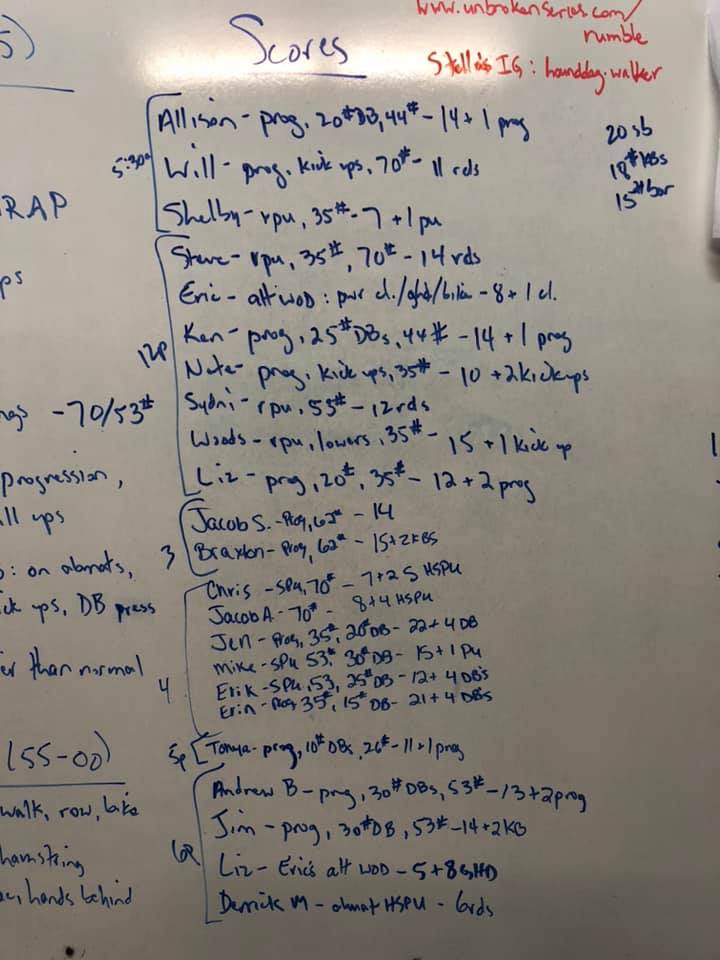 www.unbrokenseries.com/
rumble
Stella's IG: hounddog.walker
5)
Scores
5:30a
Allison - prog, 20# DB, 44# - 14 + 1 prog
Will - prog, kick ups, 70# - 11 rds
Shelby - rpu, 35# - 7 + 1 pu
20 sb
18# KBs
15# bar
12p
Steve - rpu, 35#, 70# - 14 rds
Eric - alt WOD: pwr cl./ghd/bike - 8 + 1 cl.
Ken - prog, 25# DBs, 44# - 14 + 1 prog
Nate - prog, kick ups, 35# - 10 + 2 kick ups
Sydni - rpu, 55# - 12 rds
Woods - rpu, lowers, 35# - 15 + 1 kick up
Liz - prog, 20#, 35# - 12 + 2 prog
3
Jacob S. - Prog, 62# - 14
Braxton - Prog, 62# - 15+2KBS
4
Chris - SPU, 70# - 7+25 HSPU
Jacob A - 70# - 8+4 HSPU
Jen - Prog, 35#, 20# DB - 22 + 4 DB
Mike - SPU 53#, 30# DB - 15+1 PU
Erik - SPU, 53, 25# DB - 12 + 4 DB's
Erin - Prog 35#, 15# DB - 21 + 4 DB's
5p
Tonya - prog, 10# DBs, 26# - 11 + 1 prog
6p
Andrew B - prog, 30# DBs, 53# - 13 + 2 prog
Jim - prog, 30# DB, 53# - 14 + 2 KB
Liz - Eric's alt WOD - 5 + 8 GHD
Derrick M - abmat HSPU - 6 rds
RAP
ps
ngs - 70/53#
progression,
ll ups
: on abmats,
ck ups, DB press
er than normal
(55-00)
walk, row, bike
hamstring
hands behind